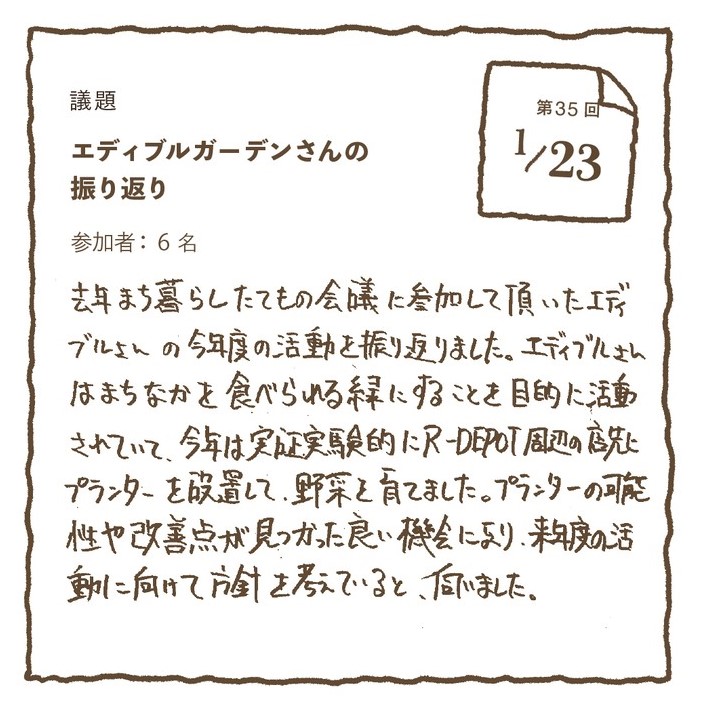 議題
第35回
1/23
エディブルガーデンさんの
振り返り
参加者：6名
去年まち暮らしたてもの会議に参加して頂いたエディ
ブルさんの今年度の活動を振り返りました。エディブルさん
はまちなかを食べられる緑にすることを目的に活動
されていて、今年は実証実験的にR-DEPOT周辺の店先に
プランターを設置して、野菜を育てました。プランターの可能
性や改善点が見つかった良い機会になり、来年度の活
動に向けて方針を考えていると、伺いました。